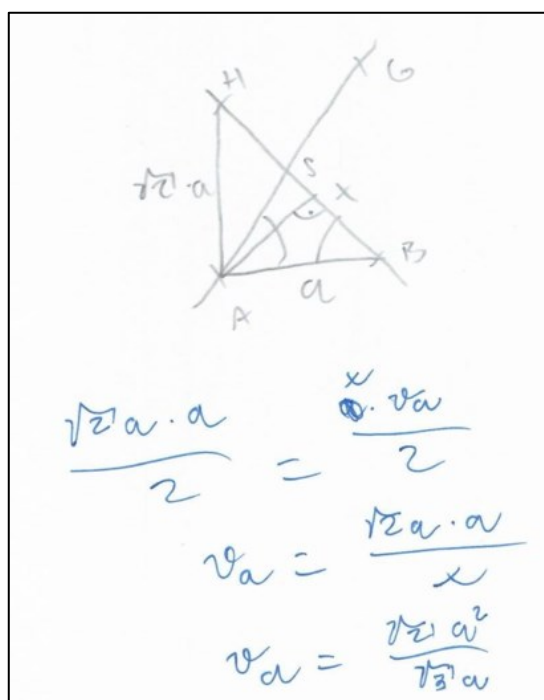 H
G
S
√2 · a
X
B
a
A
√2 a · a / 2 = x · va / 2
va = √2 a · a / x
va = √2 a² / √3 a